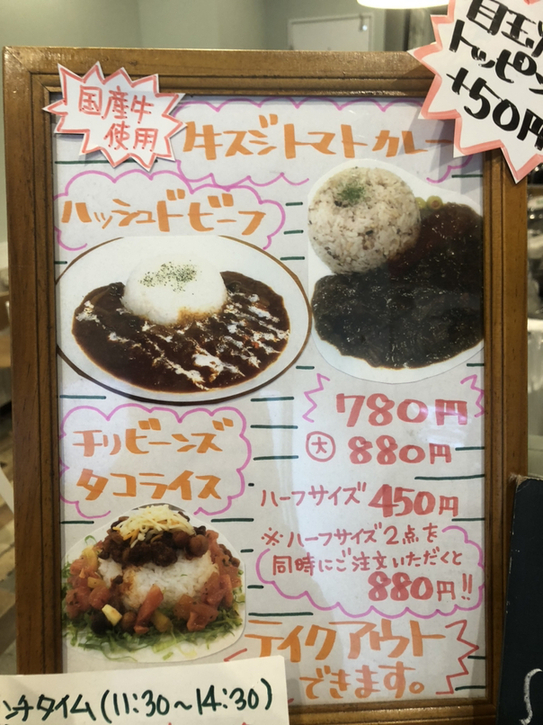 目玉
トッピン
+50円
国産牛
使用
牛スジトマトカレー
ハッシュドビーフ
780円
大 880円
ハーフサイズ 450円
※ハーフサイズ2点を
同時にご注文いただくと
880円!!
チリビーンズ
タコライス
テイクアウト
できます。
ンチタイム(11:30~14:30)